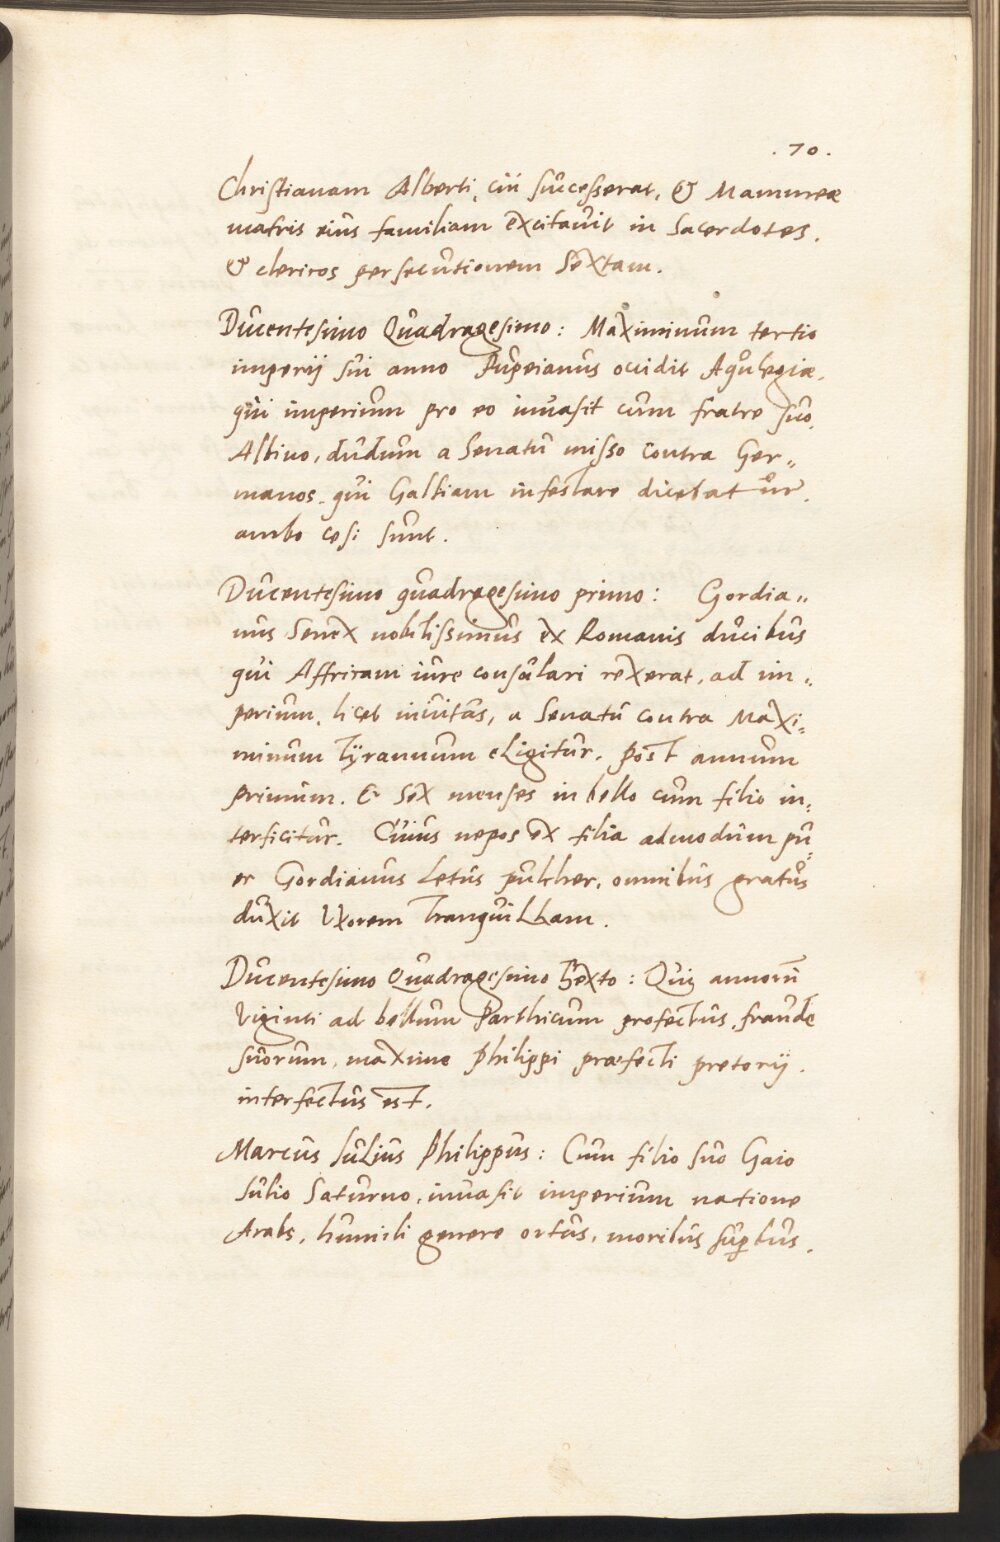 . 70 .
Christianam Alberti, cui successerat, & Mamureæ
matris eius familiam excitavit in Sacerdotes,
& clericos persecutionem Sextam.
Ducentesimo Quadragesimo: Maximinum tertio
imperij sui anno Pupeianus occidit Aqulegiæ,
qui imperium pro eo invasit cum fratre suo,
Albino, dudum a Senatu misso contra Ger„
manos, qui Galliam infestare dicebatur,
ambo cesi sunt.
Ducentesimo quadragesimo primo: Gordia„
nus Senex nobilissimus ex Romanis ducibus
qui Affricam iure consulari rexerat, ad im„
perium, licet invitus, a Senatu contra Maxi„
minum Tÿrannum eligitur. Post annum
primum. & Sex menses in bello cum filio in„
terficitur. Cuius nepos ex filia admodum pu„
er Gordianus Letus pulcher, omnibus gratus
duxit Uxorem Tranquillam.
Ducentesimo Quadragesimo Sexto: Quiq annorū
Viginti ad bellum Parthicum profectus, fraude
suorum, maxime Philippi præfecti pretorij,
interfectus est.
Marcus Julius Philippus: Cum filio suo Gaio
Julio Saturno, invasit imperium natione
Arabs, humili genere ortus, moribus supbus,